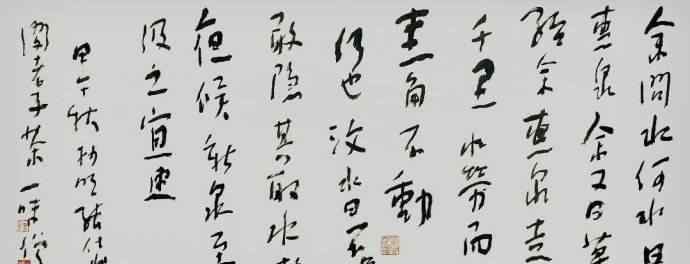 余問水何水曰
惠泉余又曰莫
紿余惠泉走
千里水勞而
圭角不動
何也汶水曰不
敢隱其取水
夜候新泉至
汲之
甲午秋抄明張岱
閔老子茶一味